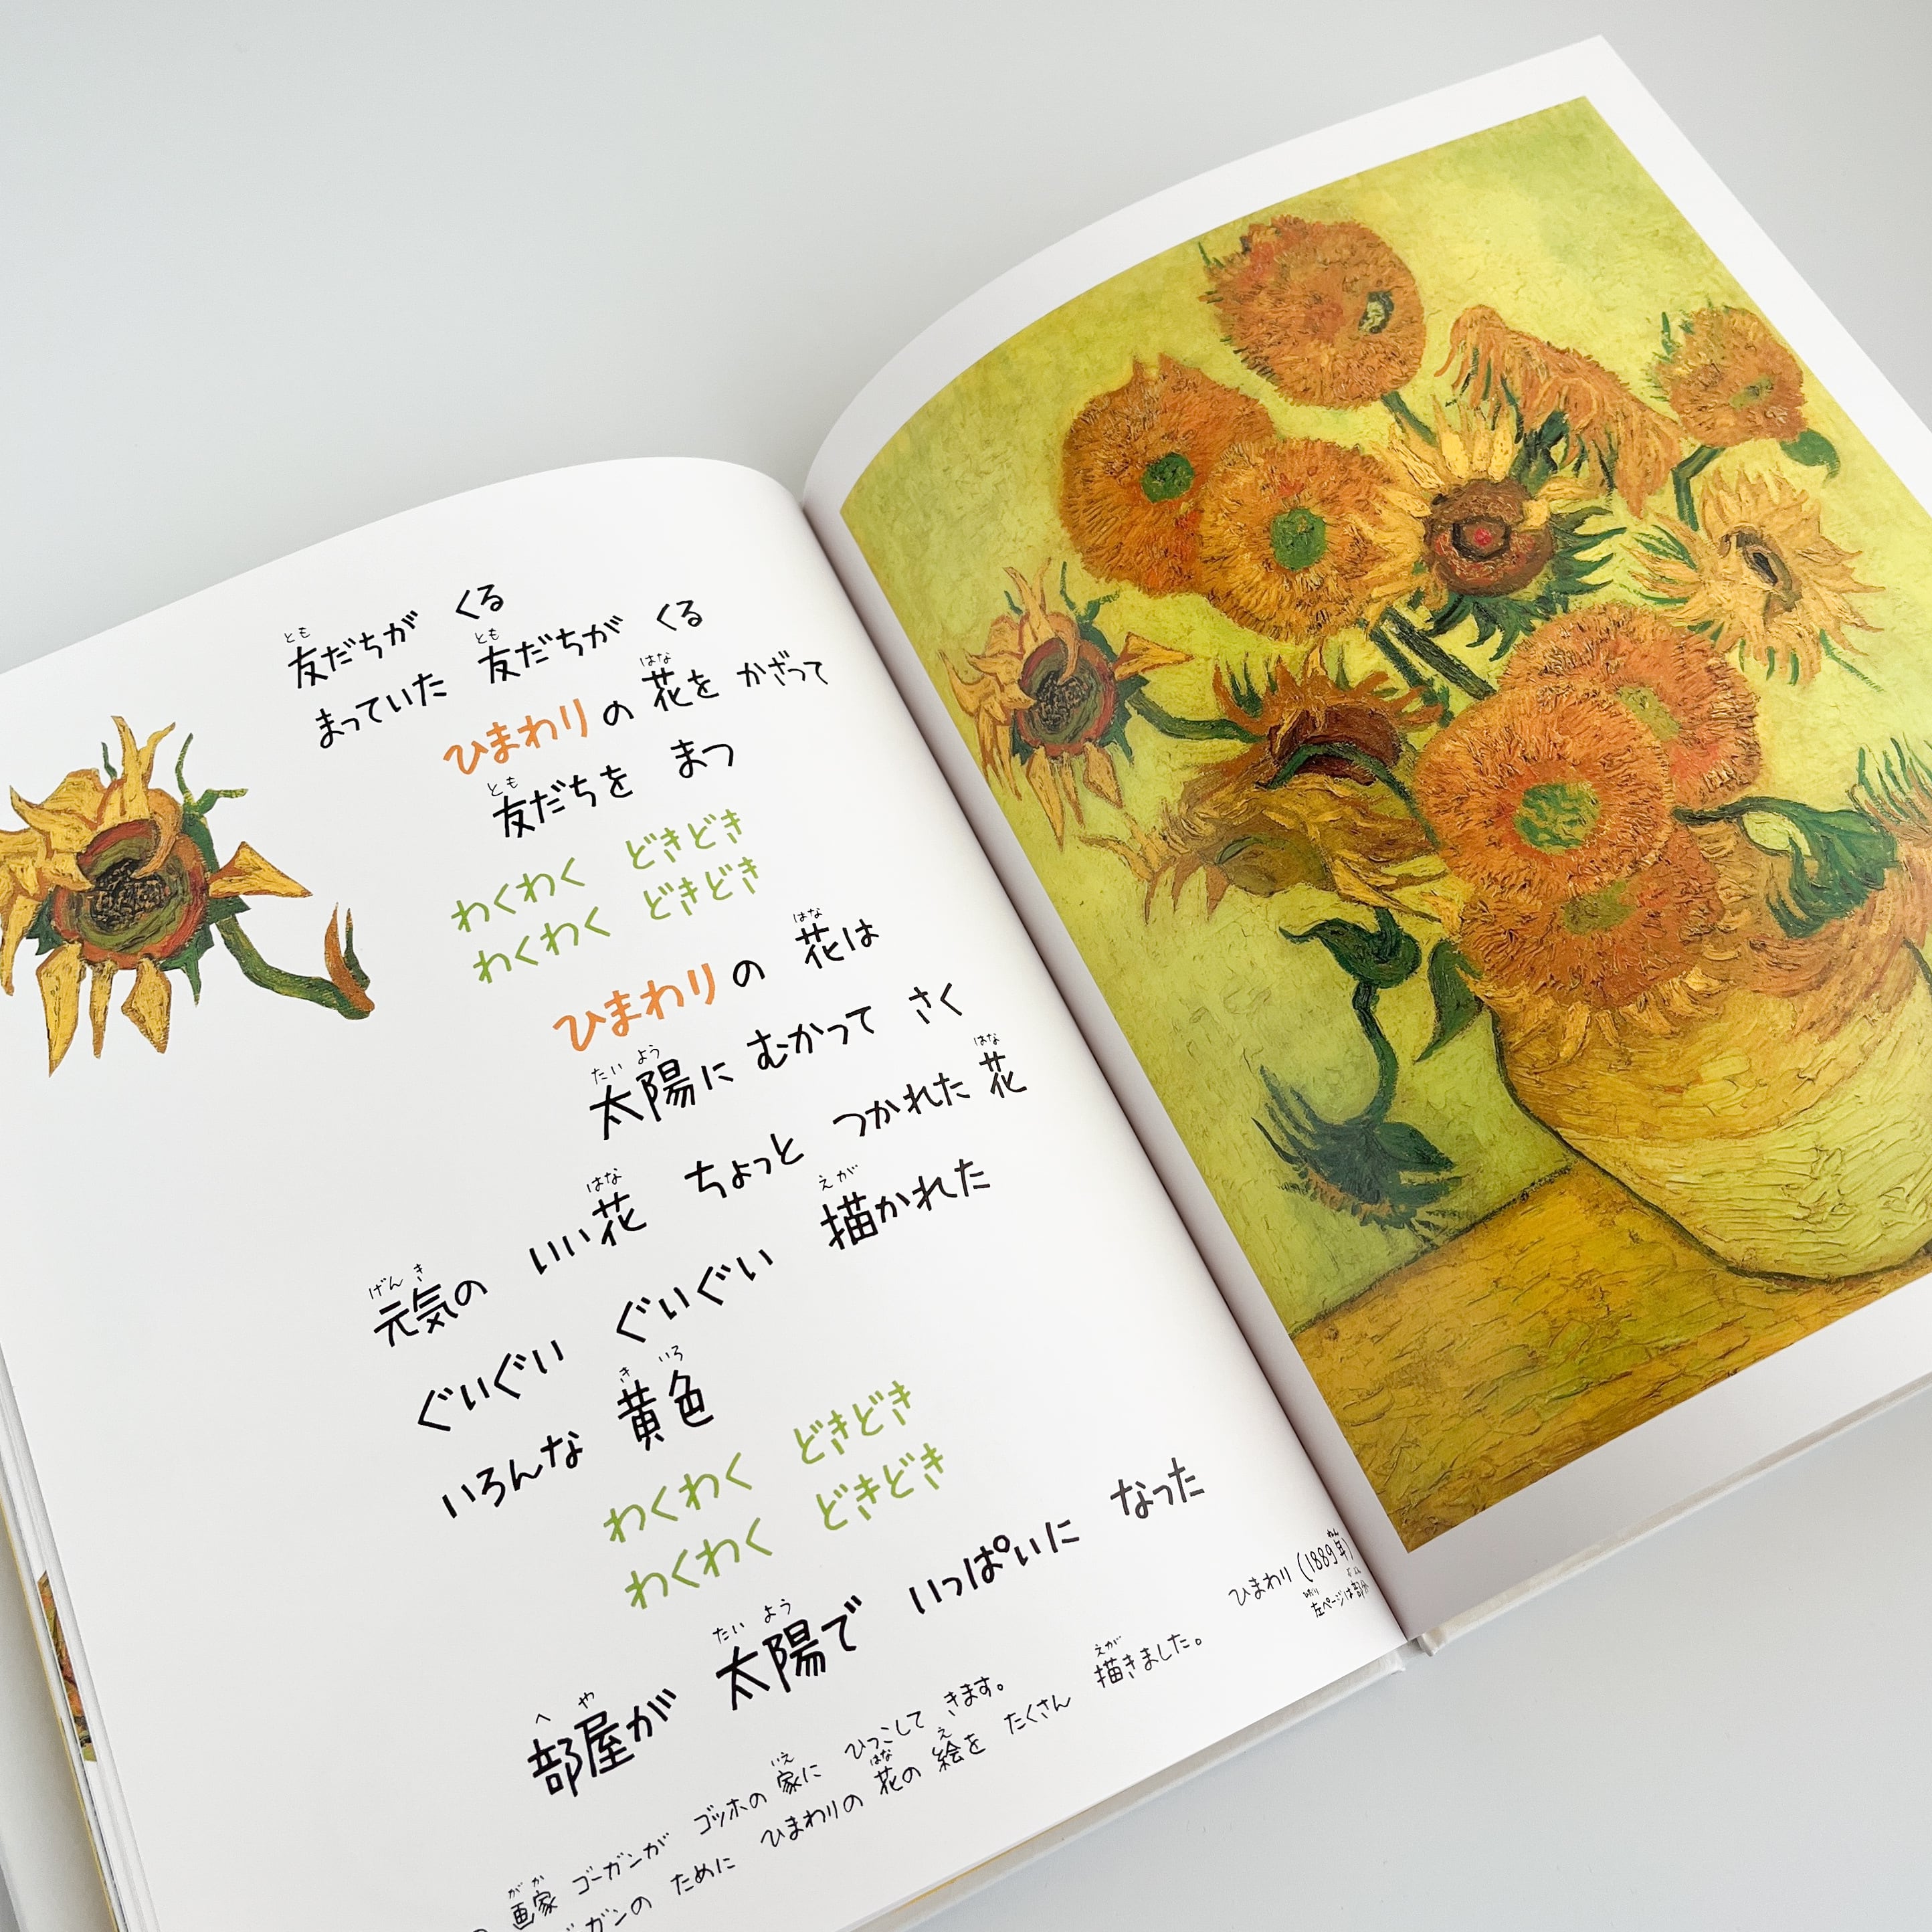 友だちが くる
まっていた 友だちが くる
ひまわりの 花を かざって
友だちを まつ
わくわく どきどき
わくわく どきどき
ひまわりの 花は
太陽に むかって さく
元気の いい花 ちょっと つかれた 花
ぐいぐい ぐいぐい 描かれた
いろんな 黄色
わくわく どきどき
わくわく どきどき
部屋が 太陽で いっぱいに なった
画家 ゴーガンが ゴッホの 家に ひっこして きます。
ガンの ために ひまわりの 花の 絵を たくさん 描きました。
ひまわり (1889年)
左ページは部分